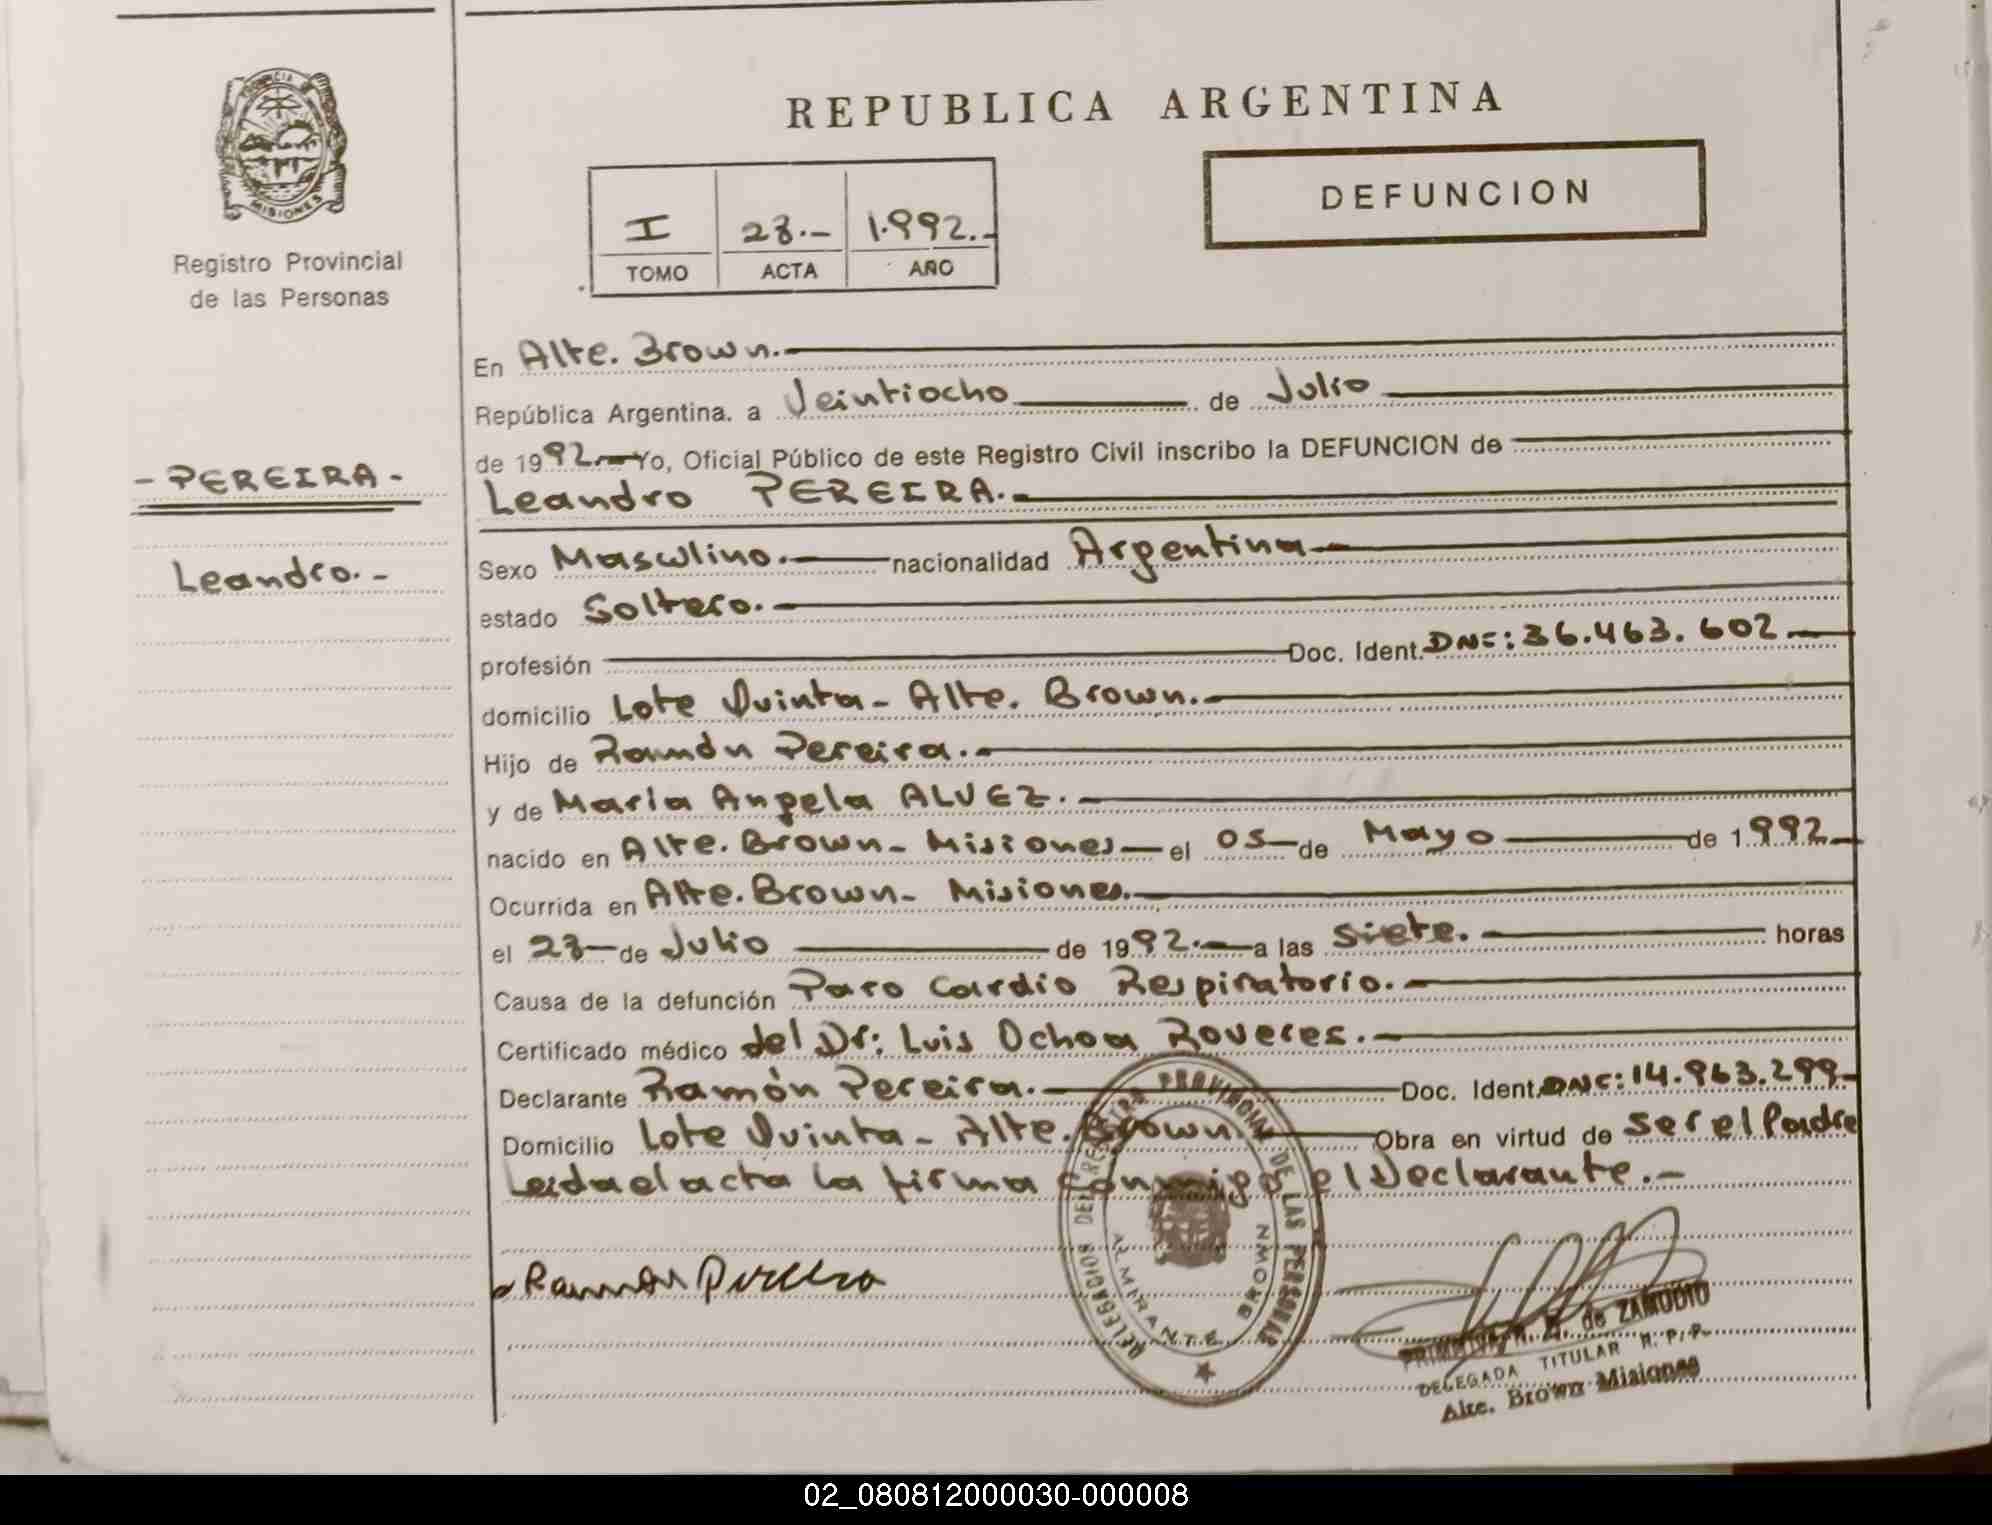 PROVINCIA
MISIONES
Registro Provincial
de las Personas
- PEREIRA -
Leandro.-
REPUBLICA ARGENTINA
I 28.- 1.992.-
TOMO ACTA AÑO
DEFUNCION
En Alte. Brown.
República Argentina. a Veintiocho de Julio
de 1992.- Yo, Oficial Público de este Registro Civil inscribo la DEFUNCION de
Leandro PEREIRA.
Sexo Masculino. nacionalidad Argentina
estado Soltero.
profesión Doc. Ident. DNI: 36.463.602
domicilio Lote Quinta - Alte. Brown.
Hijo de Ramón Pereira.
y de María Angela ALVEZ.
nacido en Alte. Brown - Misiones el 05 de Mayo de 1992
Ocurrida en Alte. Brown - Misiones.
el 27 de Julio de 1992. a las siete. horas
Causa de la defunción Paro Cardio Respiratorio.
Certificado médico del Dr: Luis Ochoa Roveres.
Declarante Ramón Pereira. Doc. Ident. DNI: 14.963.299
Domicilio Lote Quinta - Alte. Brown. Obra en virtud de ser el Padre
Leida el acta la firma conmigo el Declarante.-
Ramón Pereira
DELEGACION DEL REGISTRO PROVINCIAL DE LAS PERSONAS
ALMIRANTE BROWN
de ZAMUDIO
DELEGADA TITULAR R. P. P.
Alte. Brown Misiones
02_080812000030-000008